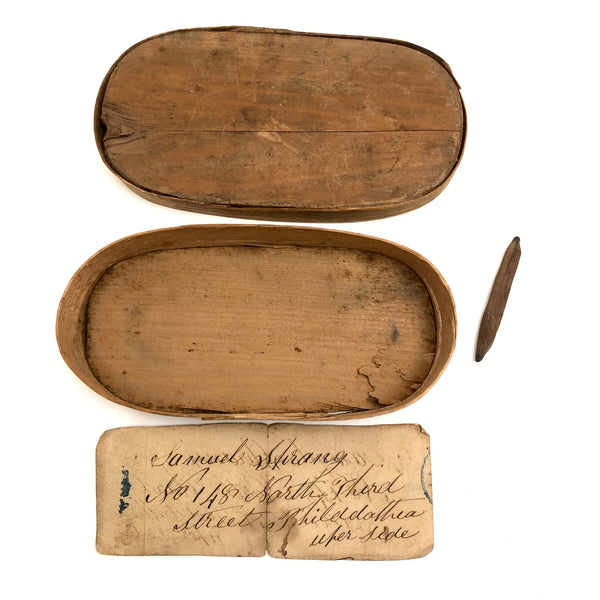 Samuel Sprang
No 148 North Third
Street Philddathia
uper side